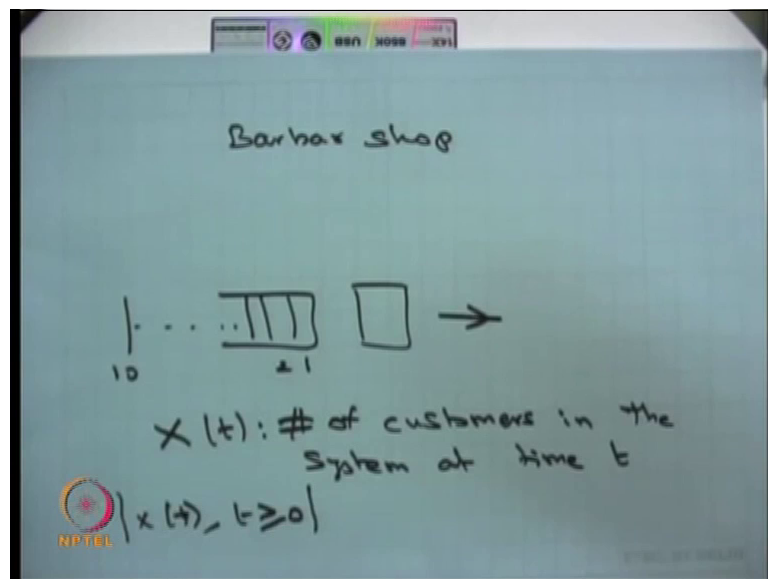 14X 850K USB
Barbar shop
10 2 1
X (t) : # of customers in the
system at time t
{ x (t), t ≥ 0 }
NPTEL